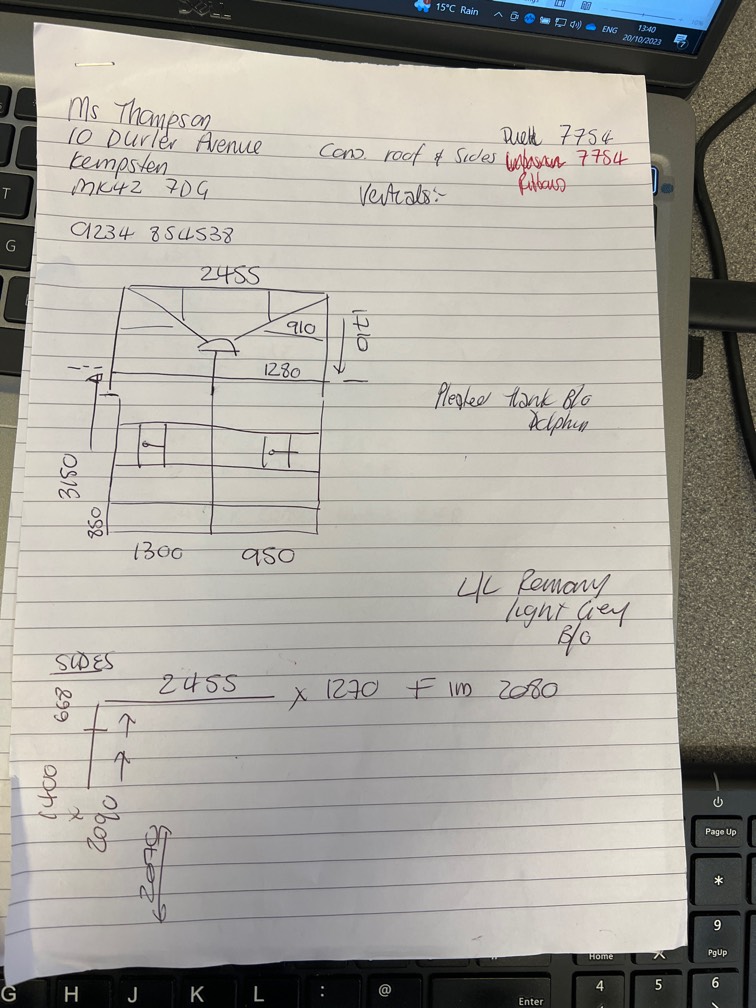 15°C Rain
ENG
13:40
20/10/2023
DELL
Ms Thompson
10 Durler Avenue
Kempsten
MK42 7DG
01234 854538
Conv. roof & Sides
Duett 7754
7754
Ribbons
Verticals:-
2455
910
1710
1280
3150
850
1300
950
Pleated Hank B/o
Dolphin
L/L Remany
light Grey
B/O
SIDES
2455 x 1270 F 1m 2080
668
1400
x
2090
2070
T
G
Page Up
*
9
PgUp
Home
4
5
6
G H J K L : @
Enter